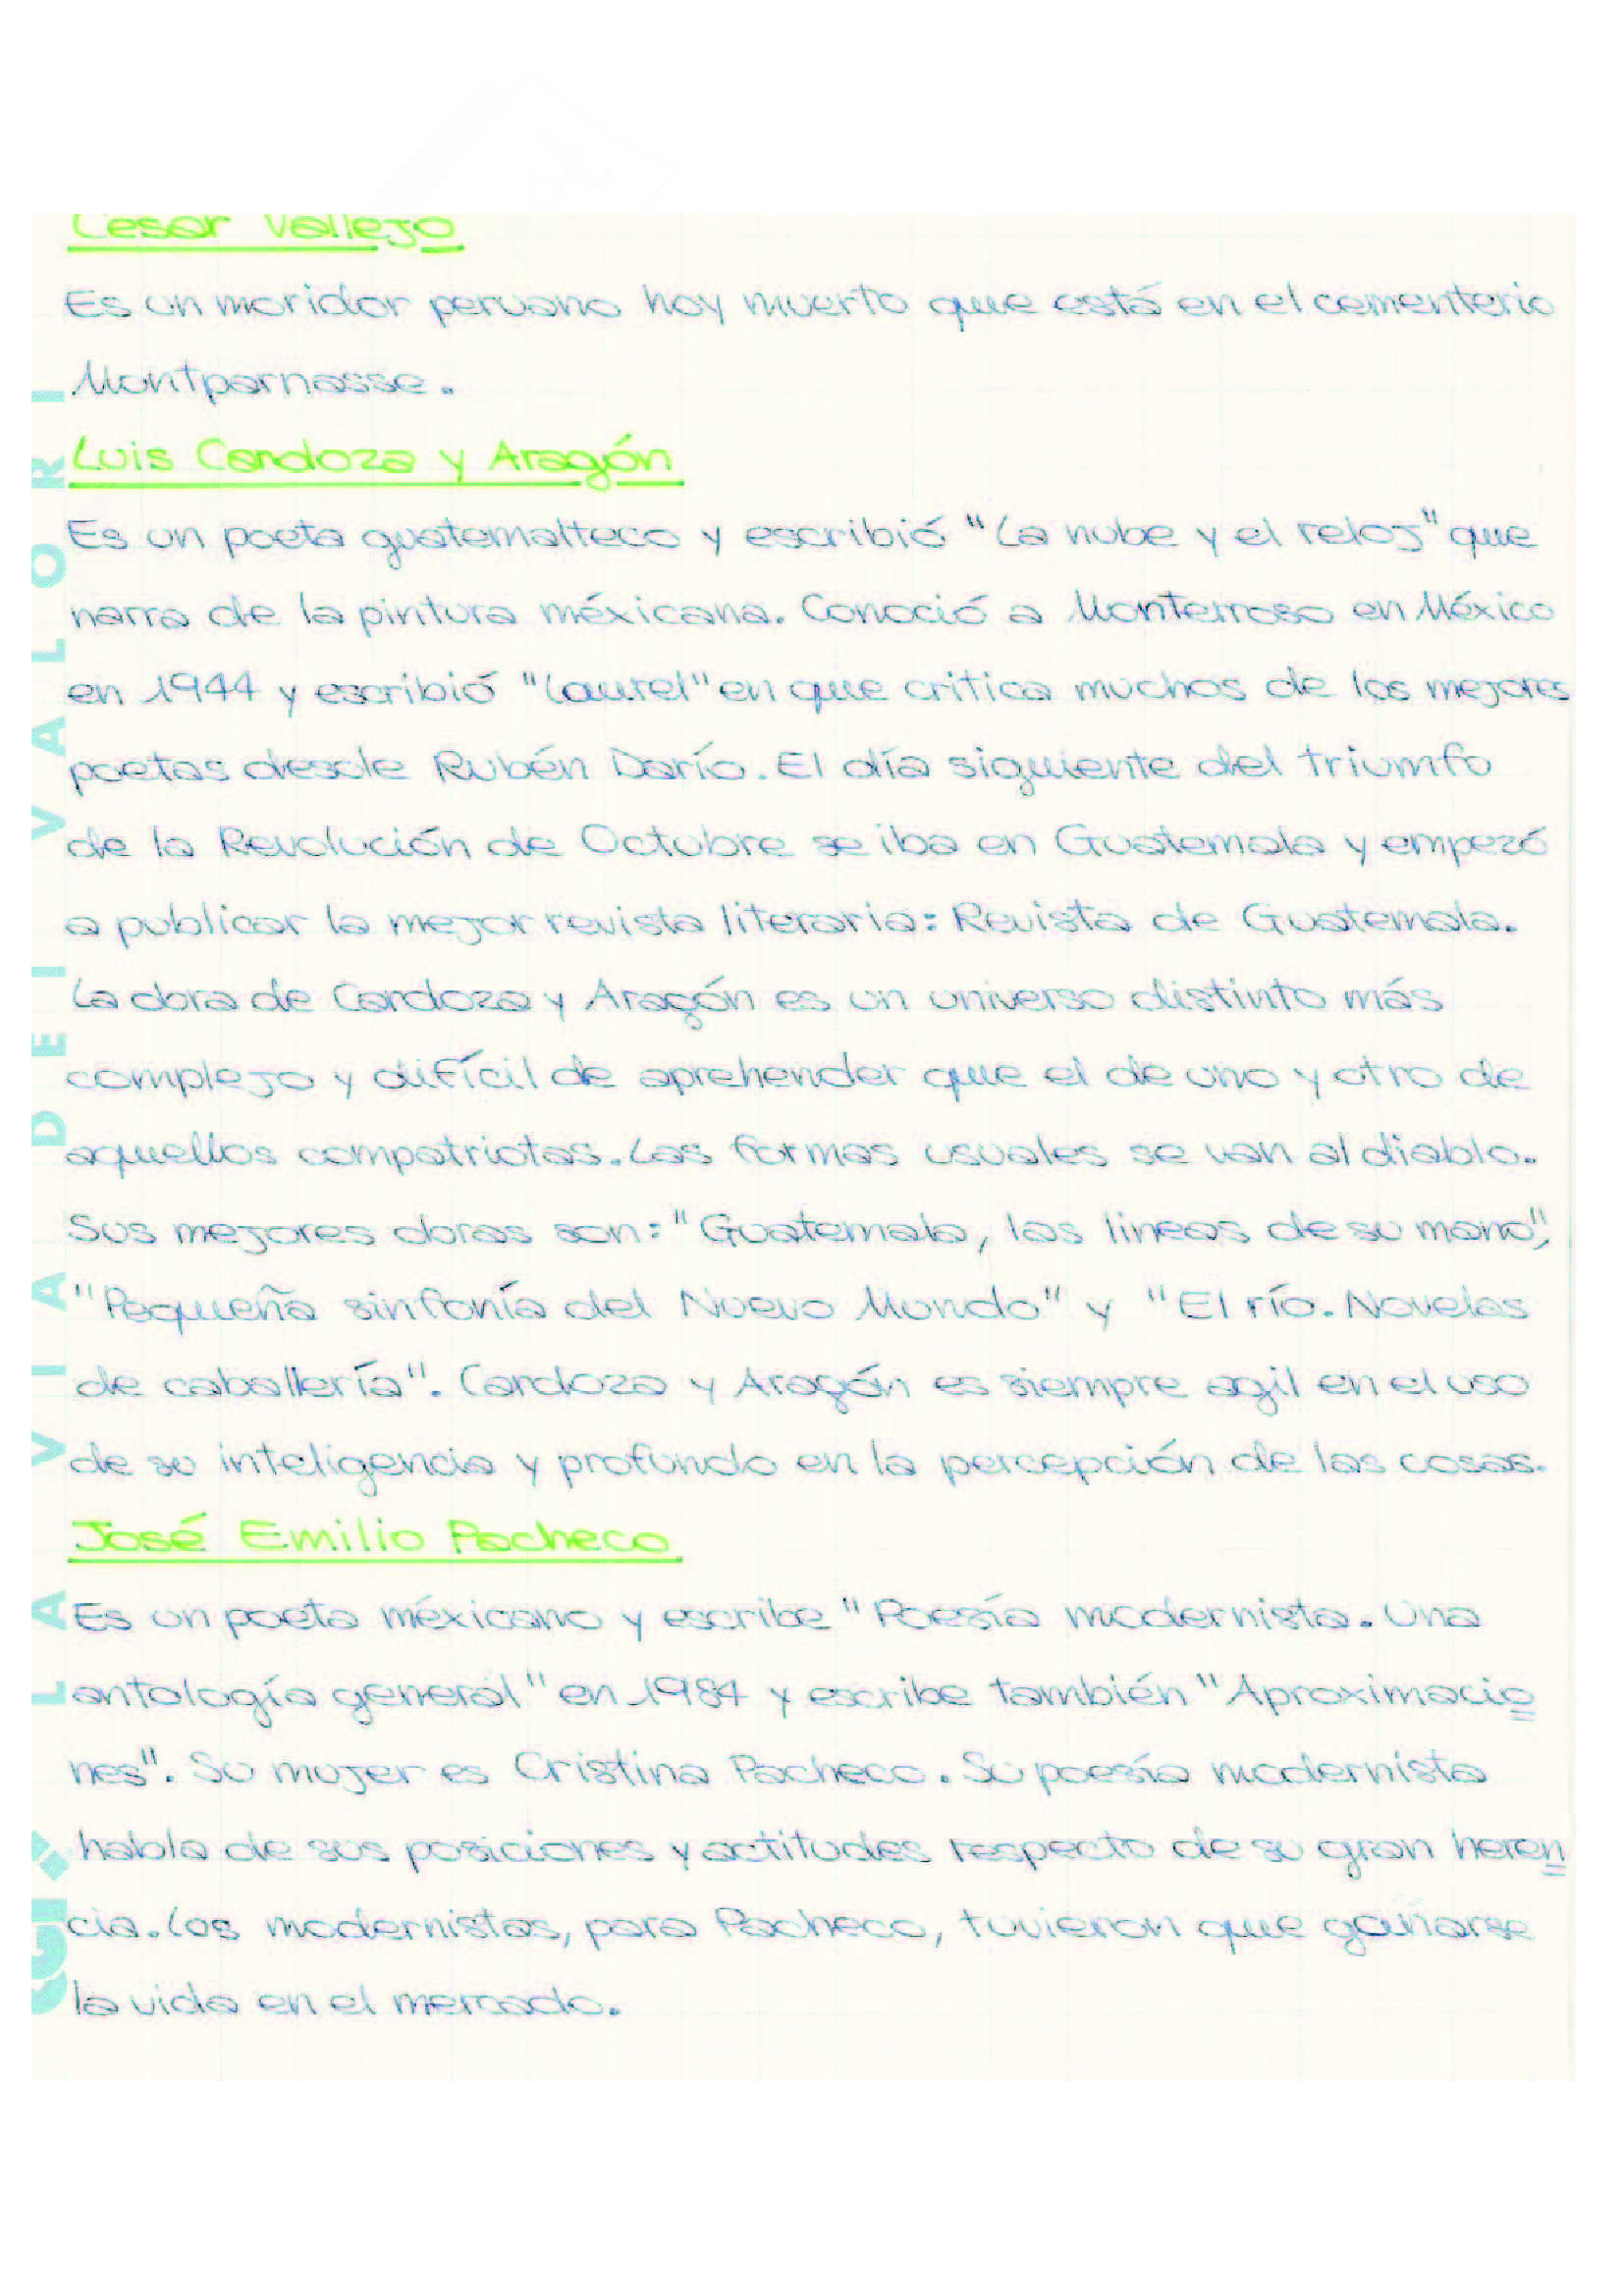 Cesar Vallejo
Es un moridor peruano hoy muerto que está en el cementerio
Montparnasse.
Luis Cardoza y Aragón
Es un poeta guatemalteco y escribió "La nube y el reloj" que
narra de la pintura méxicana. Conoció a Monterroso en México
en 1944 y escribió "Laurel" en que critica muchos de los mejores
poetas desde Rubén Darío. El día siguiente del triumfo
de la Revolución de Octubre se iba en Guatemala y empezó
a publicar la mejor revista literaria: Revista de Guatemala.
La obra de Cardoza y Aragón es un universo distinto más
complejo y difícil de aprehender que el de uno y otro de
aquellos compatriotas. Las formas usuales se van al diablo.
Sus mejores obras son: "Guatemala, las lineas de su mano",
"Pequeña sinfonía del Nuevo Mundo" y "El río. Novelas
de caballería". Cardoza y Aragón es siempre agil en el uso
de su inteligencia y profundo en la percepción de las cosas.
José Emilio Pacheco
Es un poeta méxicano y escribe "Poesía modernista. Una
antología general" en 1984 y escribe también "Aproximacio
nes". Su mujer es Cristina Pacheco. Su poesía modernista
habla de sus posiciones y actitudes respecto de su gran heren
cia. Los modernistas, para Pacheco, tuvieron que gañarse
la vida en el mercado.
LA VIA DEI VALORI